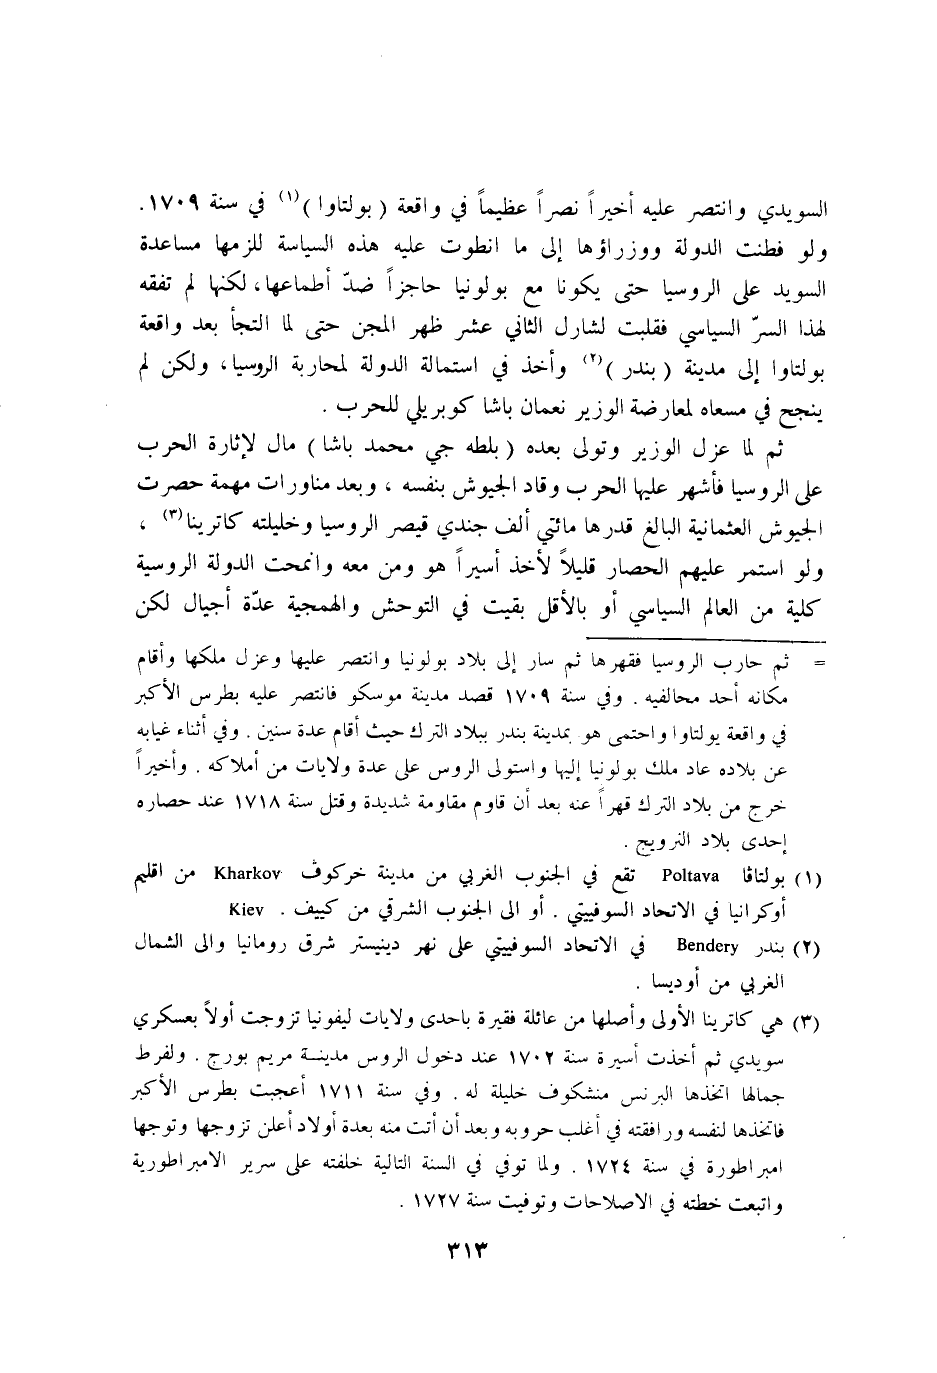 السويدي وانتصر عليه أخيراً نصراً عظيماً في واقعة ( بولتاوا )(١) في سنة ١٧٠٩.
ولو فطنت الدولة ووزراؤها إلى ما انطوت عليه هذه السياسة للزمها مساعدة
السويد على الروسيا حتى يكونا مع بولونيا حاجزاً ضدّ أطماعها، لكنها لم تفقه
لهذا السرّ السياسي فقلبت لشارل الثاني عشر ظهر المجن حتى لما التجأ بعد واقعة
بولتاوا إلى مدينة ( بندر )(٢) وأخذ في استمالة الدولة لمحاربة الروسيا، ولكن لم
ينجح في مسعاه لمعارضة الوزير نعمان باشا كوبريلي للحرب .
ثم لما عزل الوزير وتولى بعده ( بلطه جي محمد باشا ) مال لإثارة الحرب
على الروسيا فأشهر عليها الحرب وقاد الجيوش بنفسه ، وبعد مناورات مهمة حصرت
الجيوش العثمانية البالغ قدرها مائتي ألف جندي قيصر الروسيا وخليلته كاترينا(٣) ،
ولو استمر عليهم الحصار قليلاً لأخذ أسيراً هو ومن معه وانمحت الدولة الروسية
كلية من العالم السياسي أو بالأقل بقيت في التوحش والهمجية عدّة أجيال لكن
= ثم حارب الروسيا فقهرها ثم سار إلى بلاد بولونيا وانتصر عليها وعزل ملكها وأقام
مكانه أحد محالفيه . وفي سنة ١٧٠٩ قصد مدينة موسكو فانتصر عليه بطرس الأكبر
في واقعة يولتاوا واحتمى هو بمدينة بندر ببلاد الترك حيث أقام عدة سنين . وفي أثناء غيابه
عن بلاده عاد ملك بولونيا إليها واستولى الروس على عدة ولايات من أملاكه . وأخيراً
خرج من بلاد الترك قهراً عنه بعد أن قاوم مقاومة شديدة وقتل سنة ١٧١٨ عند حصاره
إحدى بلاد النرويج .
(١) بولتاڤا Poltava تقع في الجنوب الغربي من مدينة خركوڤ Kharkov من اقليم
أوكرانيا في الاتحاد السوفييتي . أو الى الجنوب الشرقي من كييف . Kiev
(٢) بندر Bendery في الاتحاد السوفييتي على نهر دينيستر شرق رومانيا والى الشمال
الغربي من أوديسا .
(٣) هي كاترينا الأولى وأصلها من عائلة فقيرة باحدى ولايات ليفونيا تزوجت أولاً بعسكري
سويدي ثم أخذت أسيرة سنة ١٧٠٢ عند دخول الروس مدينة مريم بورج . ولفرط
جمالها اتخذها البرنس منشكوف خليلة له . وفي سنة ١٧١١ أعجبت بطرس الأكبر
فاتخذها لنفسه ورافقته في أغلب حروبه وبعد أن أتت منه بعدة أولاد أعلن تزوجها وتوجها
امبراطورة في سنة ١٧٢٤ . ولما توفي في السنة التالية خلفته على سرير الامبراطورية
واتبعت خطته في الاصلاحات وتوفيت سنة ١٧٢٧ .
٣١٣